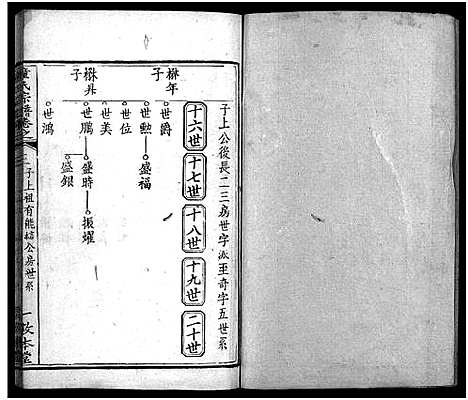 子上公後長二三房世字派至奇字五世系
十六世
十七世
十八世
十九世
二十世
楙年子
世爵
世勳
盛福
世位
楙昇子
世美
世鵬
盛時
振燿
盛銀
世鴻
氏宗譜卷之
子上祖有能
公房世系
一致本堂